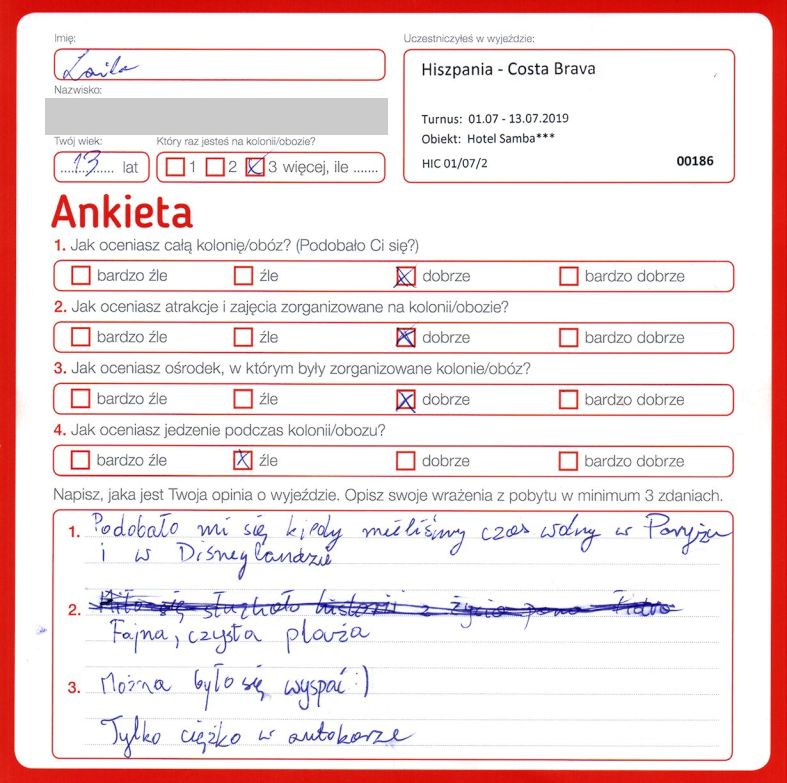 Imię:
Laila
Nazwisko:
Twój wiek:
13 lat
Który raz jesteś na kolonii/obozie?
1 2 3 więcej, ile .......
Uczestniczyłeś w wyjeździe:
Hiszpania - Costa Brava
Turnus: 01.07 - 13.07.2019
Obiekt: Hotel Samba***
HIC 01/07/2 00186
Ankieta
1. Jak oceniasz całą kolonię/obóz? (Podobało Ci się?)
bardzo źle źle dobrze bardzo dobrze
2. Jak oceniasz atrakcje i zajęcia zorganizowane na kolonii/obozie?
bardzo źle źle dobrze bardzo dobrze
3. Jak oceniasz ośrodek, w którym były zorganizowane kolonie/obóz?
bardzo źle źle dobrze bardzo dobrze
4. Jak oceniasz jedzenie podczas kolonii/obozu?
bardzo źle źle dobrze bardzo dobrze
Napisz, jaka jest Twoja opinia o wyjeździe. Opisz swoje wrażenia z pobytu w minimum 3 zdaniach.
1. Podobało mi się kiedy mieliśmy czas wolny w Paryżu
i w Disneylandzie
2. Miło się słuchało historii z życia pana
Fajna, czysta plaża
3. Można było się wyspać :)
Tylko ciężko w autokarze